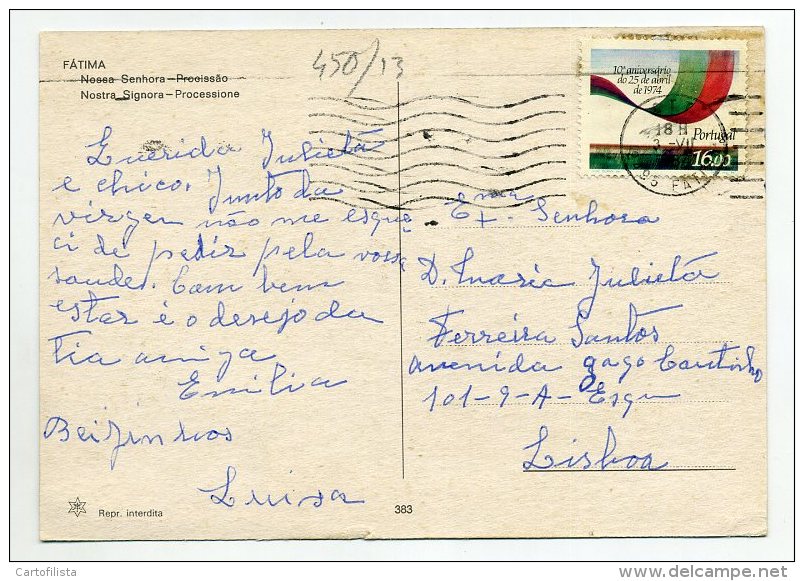 FÁTIMA
Nossa Senhora – Procissão
Nostra Signora – Processione
450/13
10º aniversário
do 25 de abril
de 1974
Portugal
16.00
18 H
3 -VII
Querida Julieta
e chico. Junto da
virgen não me esque
ci de pedir pela vossa
saude. Com bem
estar é o desejo da
tia amiga
Emilia
Beijinhos
Luisa
Exma Senhora
D. Maria Julieta
Ferreira Santos
avenida gago Coutinho
101-9-A-Esqu
Lisboa
Repr. interdita
383
Cartofilista
delcampe.net